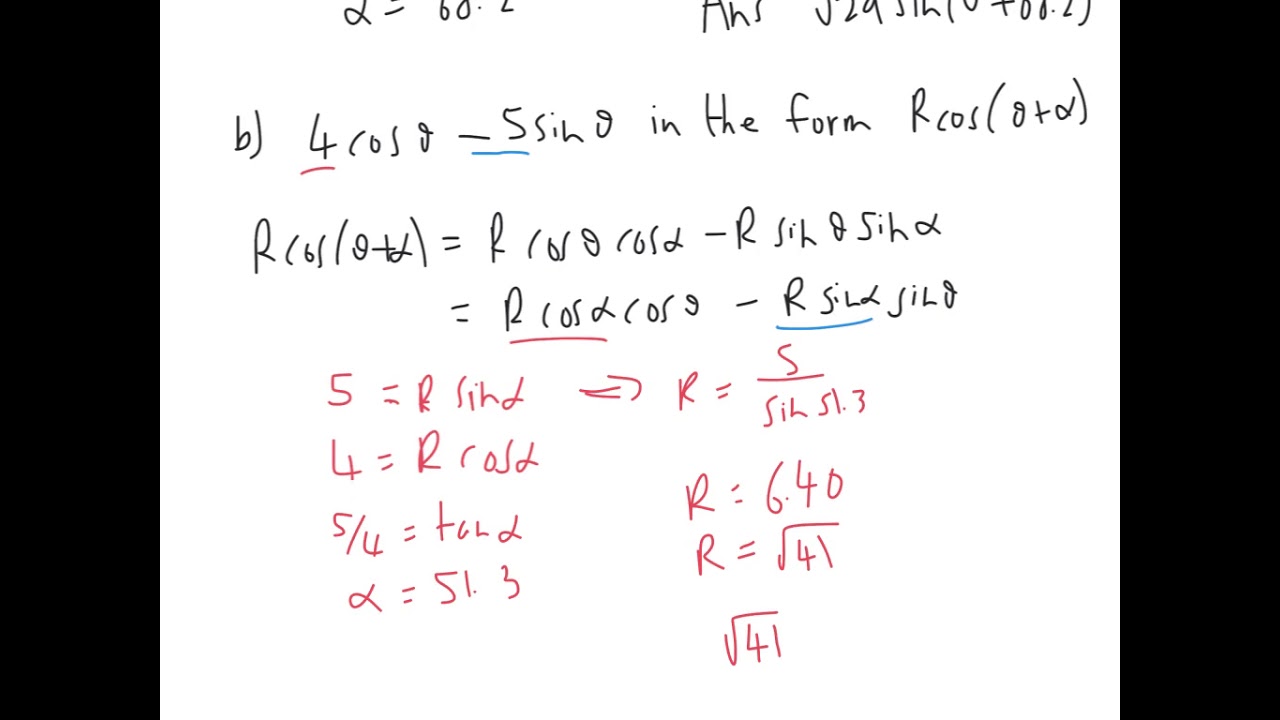 α = 68.2 Ans √29 sin(θ+68.2)
b) 4cosθ – 5sinθ in the form Rcos(θ+α)
Rcos(θ+α) = R cosθ cosα – R sinθ sinα
= R cosα cosθ – R sinα sinθ
5 = R sinα ⇒ R = 5/sin 51.3
4 = R cosα
R = 6.40
5/4 = tanα
R = √41
α = 51.3
√41